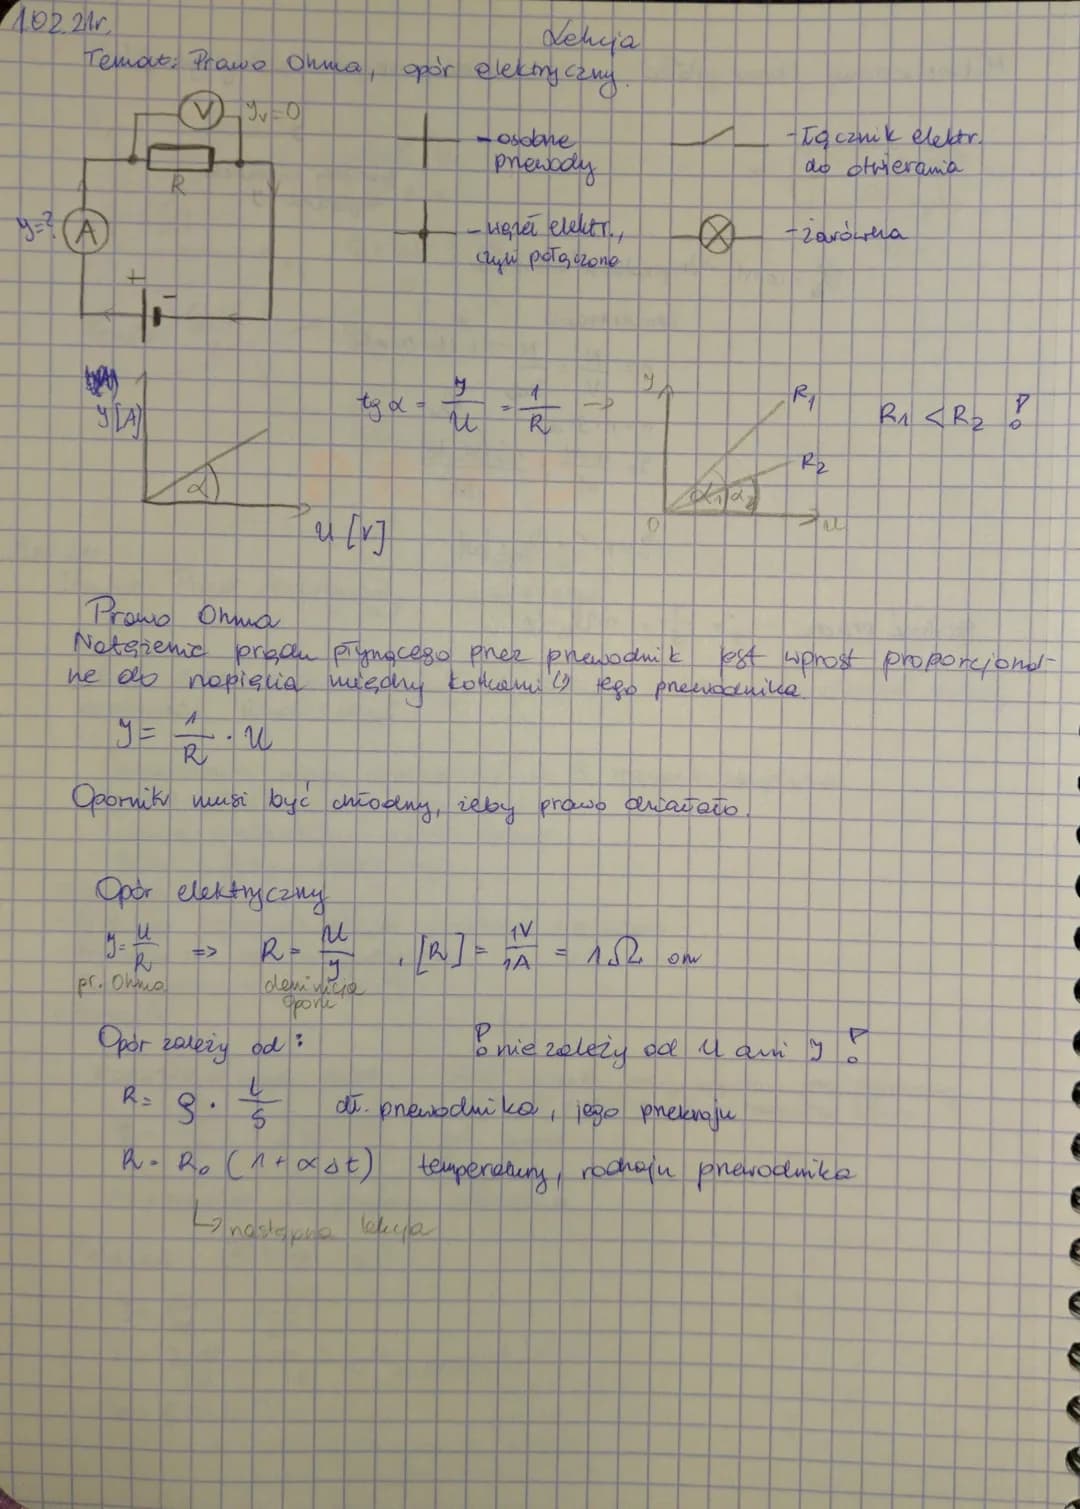 1.02.21r.
Lekcja
Temat: Prawo Ohma, opór elektryczny.
V
Iv=0
R
I=?
A
+
-
- osobne
przewody
- węzeł elektr.,
czyli połączone
- łącznik elektr.
do otwierania
- żarówka
I[A]
α
U [V]
tg α = I/U = 1/R →
I
R₁
R₂
α₁
α₂
0
U
R₁ < R₂ !
Prawo Ohma
Natężenie prądu płynącego przez przewodnik jest wprost proporcjonal-
ne do napięcia między końcami (!) tego przewodnika.
I = 1/R · U
Opornik musi być chłodny, żeby prawo działało.
Opór elektryczny
I = U/R => R = U/I , [R] = 1V/1A = 1Ω om
pr. Ohma
definicja
oporu
Opór zależy od:
! nie zależy od U ani I !
R = ρ · L/S dł. przewodnika, jego przekroju
R = R₀ (1 + α Δt) temperatury, rodzaju przewodnika
↳ następna lekcja